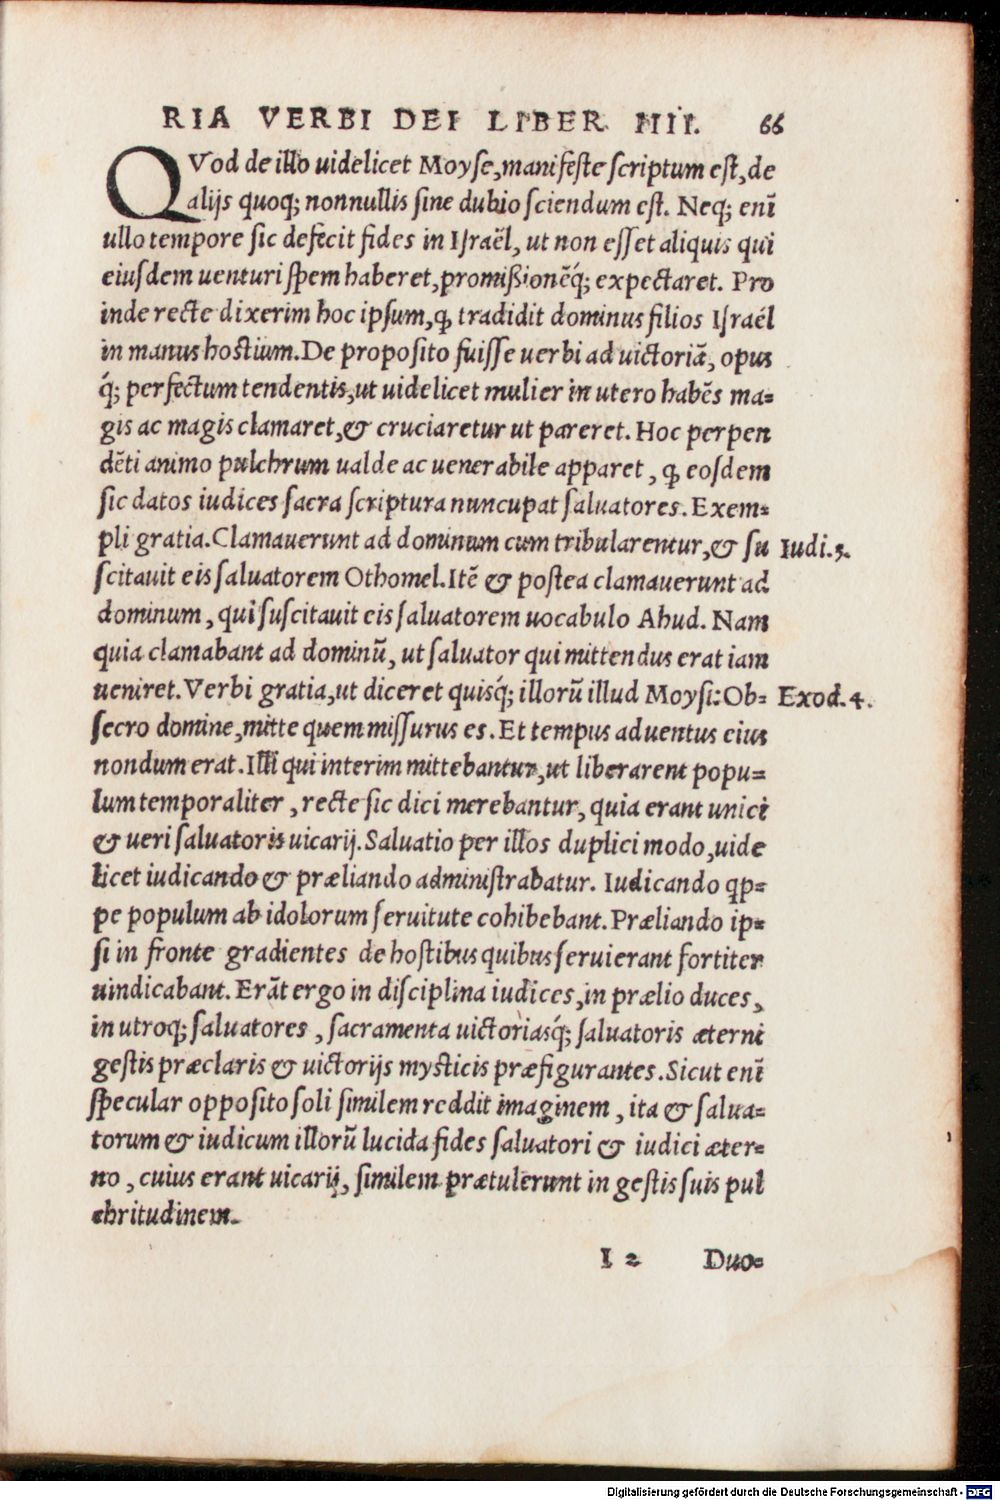 RIA VERBI DEI LIBER IIII. 66
QVod de illo uidelicet Moyse, manifeste scriptum est, de
alijs quoq; nonnullis sine dubio sciendum est. Neq; enĩ
ullo tempore sic defecit fides in Israẽl, ut non esset aliquis qui
eiusdem uenturi spem haberet, promißionẽq́; expectaret. Pro
inde recte dixerim hoc ipsum, ꝙ tradidit dominus filios Israél
in manus hostium. De proposito fuisse uerbi ad uictoriã, opus
q́; perfectum tendentis, ut uidelicet mulier in utero habẽs ma=
gis ac magis clamaret, & cruciaretur ut pareret. Hoc perpen
dẽti animo pulchrum ualde ac uenerabile apparet, ꝙ eosdem
sic datos iudices sacra scriptura nuncupat saluatores. Exem=
pli gratia. Clamauerunt ad dominum cum tribularentur, & su Iudi. 3.
scitauit eis saluatorem Othomel. Itẽ & postea clamauerunt ad
dominum, qui suscitauit eis saluatorem uocabulo Ahud. Nam
quia clamabant ad dominũ, ut saluator qui mittendus erat iam
ueniret. Verbi gratia, ut diceret quisq́; illorũ illud Moysi: Ob= Exod. 4.
secro domine, mitte quem missurus es. Et tempus aduentus eius
nondum erat. Illi qui interim mittebantur, ut liberarent popu=
lum temporaliter, recte sic dici merebantur, quia erant unici
& ueri saluatoris uicarij. Saluatio per illos duplici modo, uide
licet iudicando & præliando administrabatur. Iudicando qp=
pe populum ab idolorum seruitute cohibebant. Præliando ip=
si in fronte gradientes de hostibus quibus seruierant fortiter
uindicabant. Erãt ergo in disciplina iudices, in prælio duces,
in utroq; saluatores, sacramenta uictoriasq́; saluatoris æterni
gestis præclaris & uictorijs mysticis præfigurantes. Sicut enĩ
specular opposito soli similem reddit imaginem, ita & salua=
torum & iudicum illorũ lucida fides saluatori & iudici æter=
no, cuius erant uicarij, similem prætulerunt in gestis suis pul
chritudinem.
I 2 Duo=
Digitalisierung gefördert durch die Deutsche Forschungsgemeinschaft - DFG